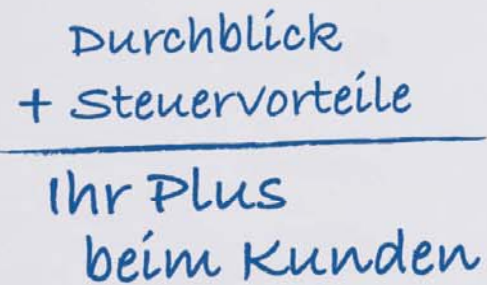 Durchblick
+ Steuervorteile
Ihr Plus
beim Kunden